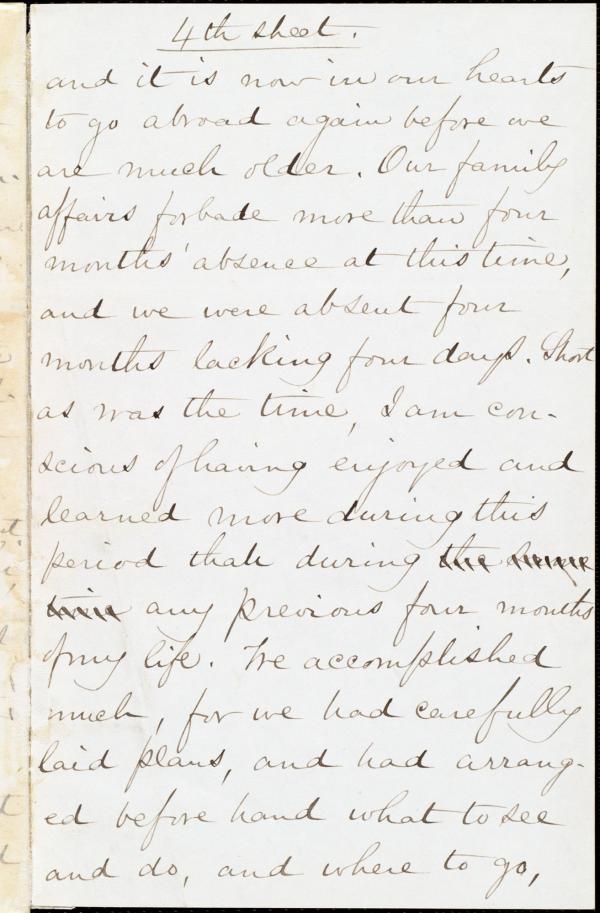 4th sheet.
and it is now in our hearts
to go abroad again before we
are much older. Our family
affairs forbade more than four
months' absence at this time,
and we were absent four
months lacking four days. Short
as was the time, I am con-
scious of having enjoyed and
learned more during this
period than during the same
time any previous four months
of my life. We accomplished
much, for we had carefully
laid plans, and had arrang-
ed before hand what to see
and do, and where to go,